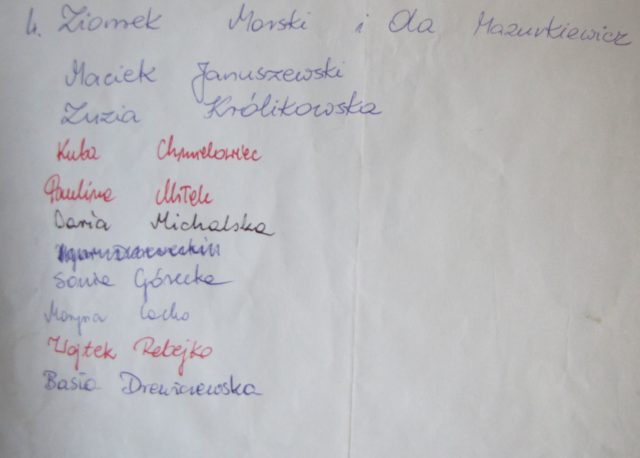 4. Ziomek Morski i Ola Mazurkiewicz
Maciek Januszewski
Zuzia Królikowska
Kuba Chmielowiec
Paulina Miłek
Daria Michalska
Sonia Górecka
Wojtek Rebejko
Basia